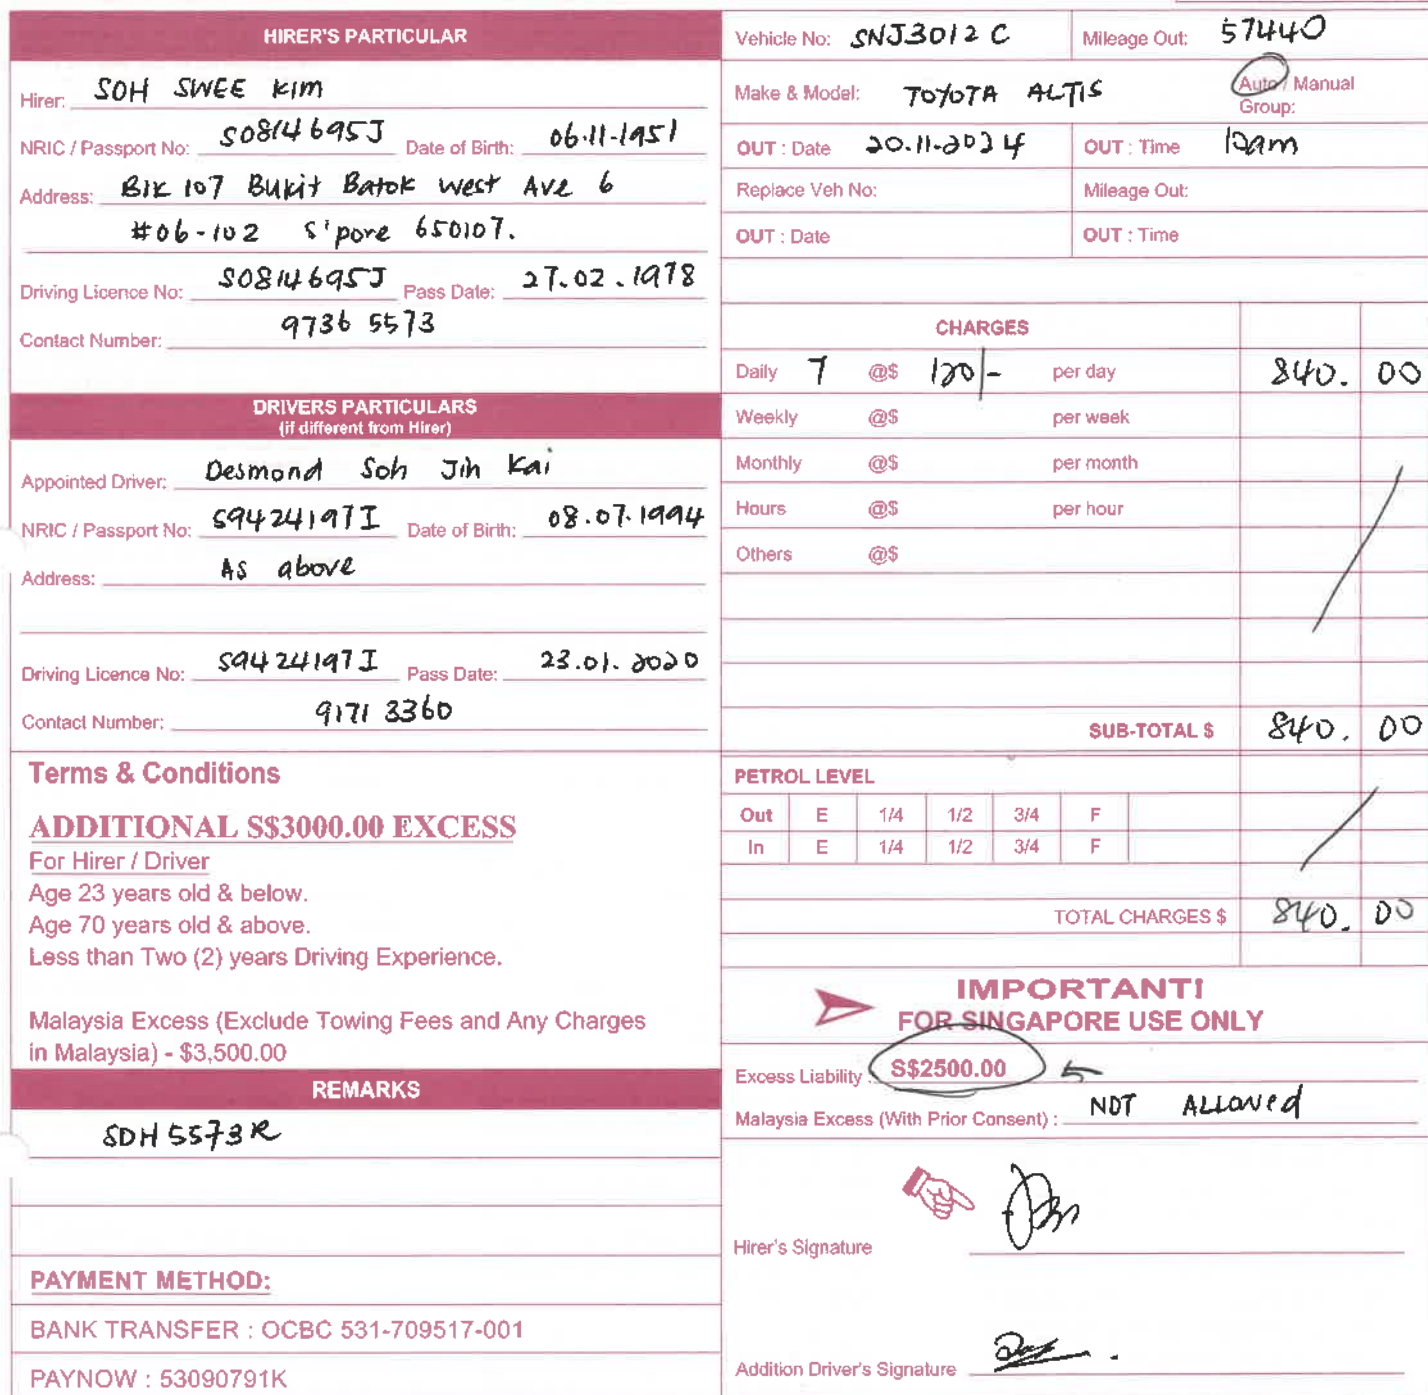 HIRER'S PARTICULAR
Hirer: SOH SWEE KIM
NRIC / Passport No: S0814695J Date of Birth: 06.11.1951
Address: Blk 107 Bukit Batok West Ave 6
#06-102 S'pore 650107.
Driving Licence No: S0814695J Pass Date: 27.02.1978
Contact Number: 9736 5573
DRIVERS PARTICULARS
(if different from Hirer)
Appointed Driver: Desmond Soh Jih Kai
NRIC / Passport No: S9424197I Date of Birth: 08.07.1994
Address: As above
Driving Licence No: S9424197I Pass Date: 23.01.2020
Contact Number: 9171 3360
Terms & Conditions
ADDITIONAL S$3000.00 EXCESS
For Hirer / Driver
Age 23 years old & below.
Age 70 years old & above.
Less than Two (2) years Driving Experience.
Malaysia Excess (Exclude Towing Fees and Any Charges
in Malaysia) - $3,500.00
REMARKS
SDH 5573R
PAYMENT METHOD:
BANK TRANSFER : OCBC 531-709517-001
PAYNOW : 53090791K
Vehicle No: SNJ3012C Mileage Out: 57440
Make & Model: TOYOTA ALTIS Auto / Manual
Group:
OUT : Date 20.11.2024 OUT : Time
Replace Veh No: Mileage Out:
OUT : Date OUT : Time
CHARGES
Daily 7 @$ 120/- per day 840.00
Weekly @$ per week
Monthly @$ per month
Hours @$ per hour
Others @$
SUB-TOTAL $ 840.00
PETROL LEVEL
Out E 1/4 1/2 3/4 F
In E 1/4 1/2 3/4 F
TOTAL CHARGES $ 840.00
IMPORTANT!
FOR SINGAPORE USE ONLY
Excess Liability : S$2500.00
Malaysia Excess (With Prior Consent) : NOT ALLOWED
Hirer's Signature
Addition Driver's Signature